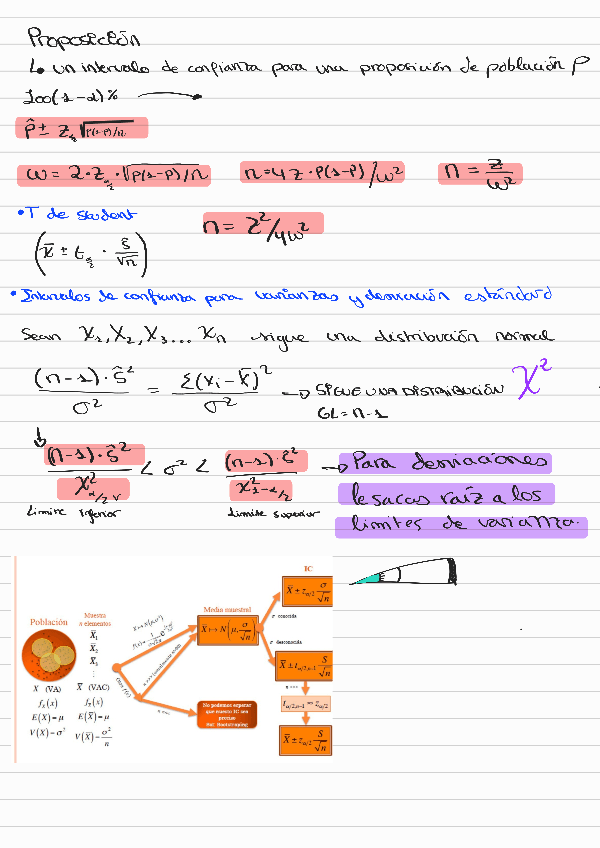 Proposición
↳ un intervalo de confianza para una proposición de población P
100(1-α)% →
p̂ ± z_{α/2} √(p(1-p)/n)
ω = 2·z_{α/2}·√(p(1-p)/n) n=4z·p(1-p)/ω² n = z/ω²
• T de student n = z²/4ω²
(x̄ ± t_{α/2} · ŝ/√n)
• Intervalos de confianza para varianzas y desviación estándard
Sean X₁, X₂, X₃... Xn sigue una distribución normal
(n-1)·ŝ²/σ² = Σ(xi - x̄)²/σ² → SIGUE UNA DISTRIBUCIÓN χ²
GL = n-1
(n-1)·ŝ²/χ²_{α/2} < σ² < (n-1)·ŝ²/χ²_{1-α/2} → Para desviaciones
le sacas raíz a los
límites de varianza.
Límite inferior Límite superior
IC
X̄ ± z_{α/2} σ/√n
Población
Muestra
n elementos
X̄₁
X̄₂
X̄₃
⋮
Media muestral
X̄ ↦ N(μ, σ/√n)
σ conocida
σ desconocida
X̄ ± t_{α/2,n-1} S/√n
t_{α/2,n-1} ≈ z_{α/2}
X̄ ± z_{α/2} S/√n
No podemos esperar
que nuestro IC sea
preciso
X (VA) X̄ (VAC)
f_X(x) f_X̄(x)
E(X) = μ E(X̄) = μ
V(X) = σ² V(X̄) = σ²/n